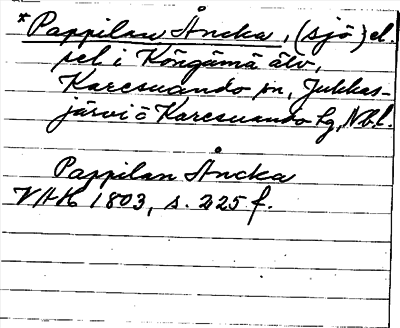 * Pappilan Åncka, (sjö) el.
sel i Köngämä älv,
Karesuando sn, Jukkas-
järvi o Karesuando lg, Nb.l.
Pappilan Åncka
VAH 1803, s. 225 f.